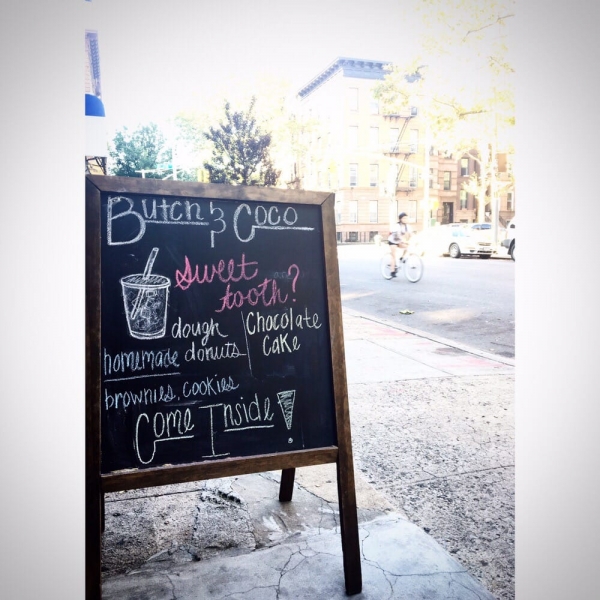 Butch & Coco
Sweet
tooth?
dough
homemade donuts
Chocolate
Cake
brownies, cookies
Come Inside!